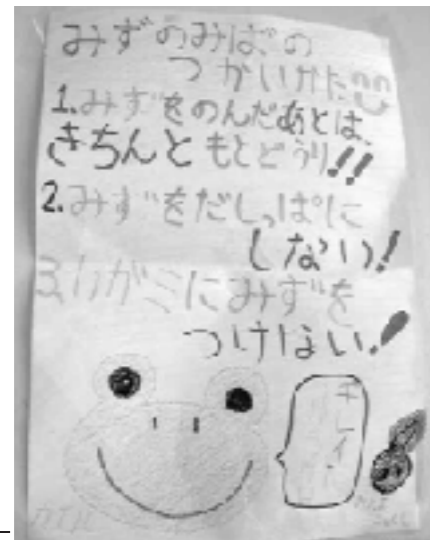 みずのみばの
つかいかた
1.みずをのんだあとは、
きちんともとどうり!!
2.みずをだしっぱに
しない!
3.カガミにみずを
つけない!